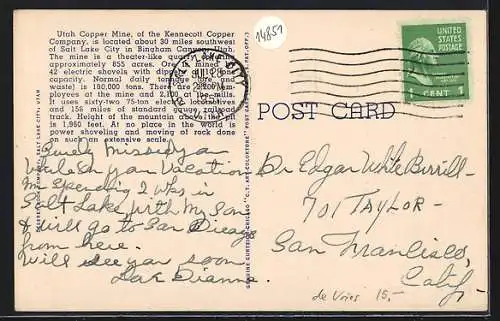 Utah Copper Mine, of the Kennecott Copper
Company, is located about 30 miles southwest
of Salt Lake City in Bingham Canyon, Utah.
The mine is a theater-like
approximately 855 acres. Ore is mined
42 electric shovels with
capacity. Normal daily tonnage
waste) is 180,000 tons. There are
ployees at the mine and 2,100 at the mills.
It uses sixty-two 75-ton electric locomotives
and 156 miles of standard gauge railroad
track. Height of the mountain above the pit
is 1,960 feet. At no place in the world is
power shoveling and moving of rock done
on such an extensive scale.
14851
UNITED
STATES
POSTAGE
1 CENT 1
POST CARD
Surely missed you
while on your Vacation
Am Spending 2 wks in
Salt Lake with My Son
& will go to San Diego
from here.
Will see you soon
Dianna.
Dr Edgar White Burrill-
701 TAYLOR-
San Francisco,
Calif.
de Vries 15,-
GENUINE CURTEICH-CHICAGO "C.T. ART-COLORTONE" POST CARD (REG. U.S. PAT. OFF.)
SALT LAKE CITY, UTAH